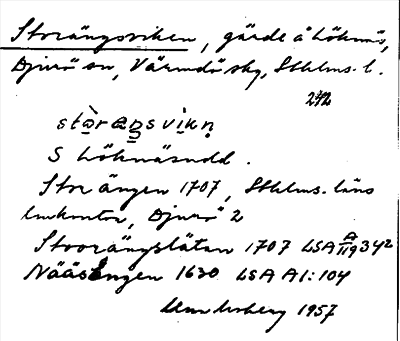 Storängsviken, gärde å Löknäs,
Djurö sn, Värmdö skg, Sthlms. l.
242
stòræŋsvìkn̥
S Löknäsudd.
Storängen 1707, Sthlms. läns
lmkontor, Djurö 2
Stoorängslätan 1707 LSA A 119 342
Nääsängen 1630 LSA A1:104
1957